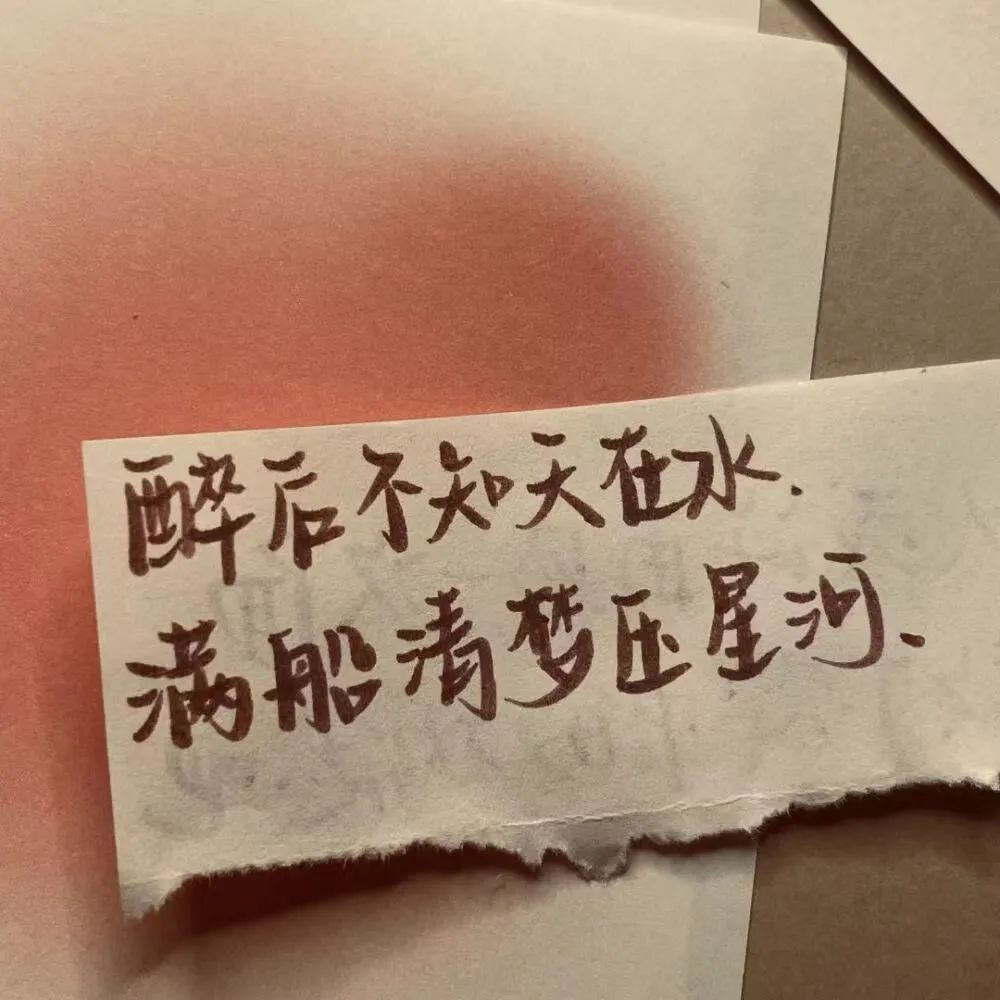 醉后不知天在水.
满船清梦压星河.